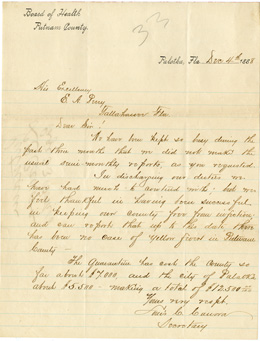 Board of Health
Putnam County.
33
Palatka, Fla Dec 4th 1888
His Excellency
E. A. Perry
Tallahassee Fla.
Dear Sir:
We have been kept so busy during the
past month that we did not make the
usual semi monthly reports, as you requested.
In discharging our duties we
have had much to contend with; but we
feel thankful in having been successful
in keeping our County free from infection,
and can report that up to this date there
has been no case of Yellow fever in Putnam
County.
The Quarantine has cost the County so
far about $7,000, and the city of Palatka
about $5,500 - making a total of $12,500
Yours very respt.
C. Canova
Secretary